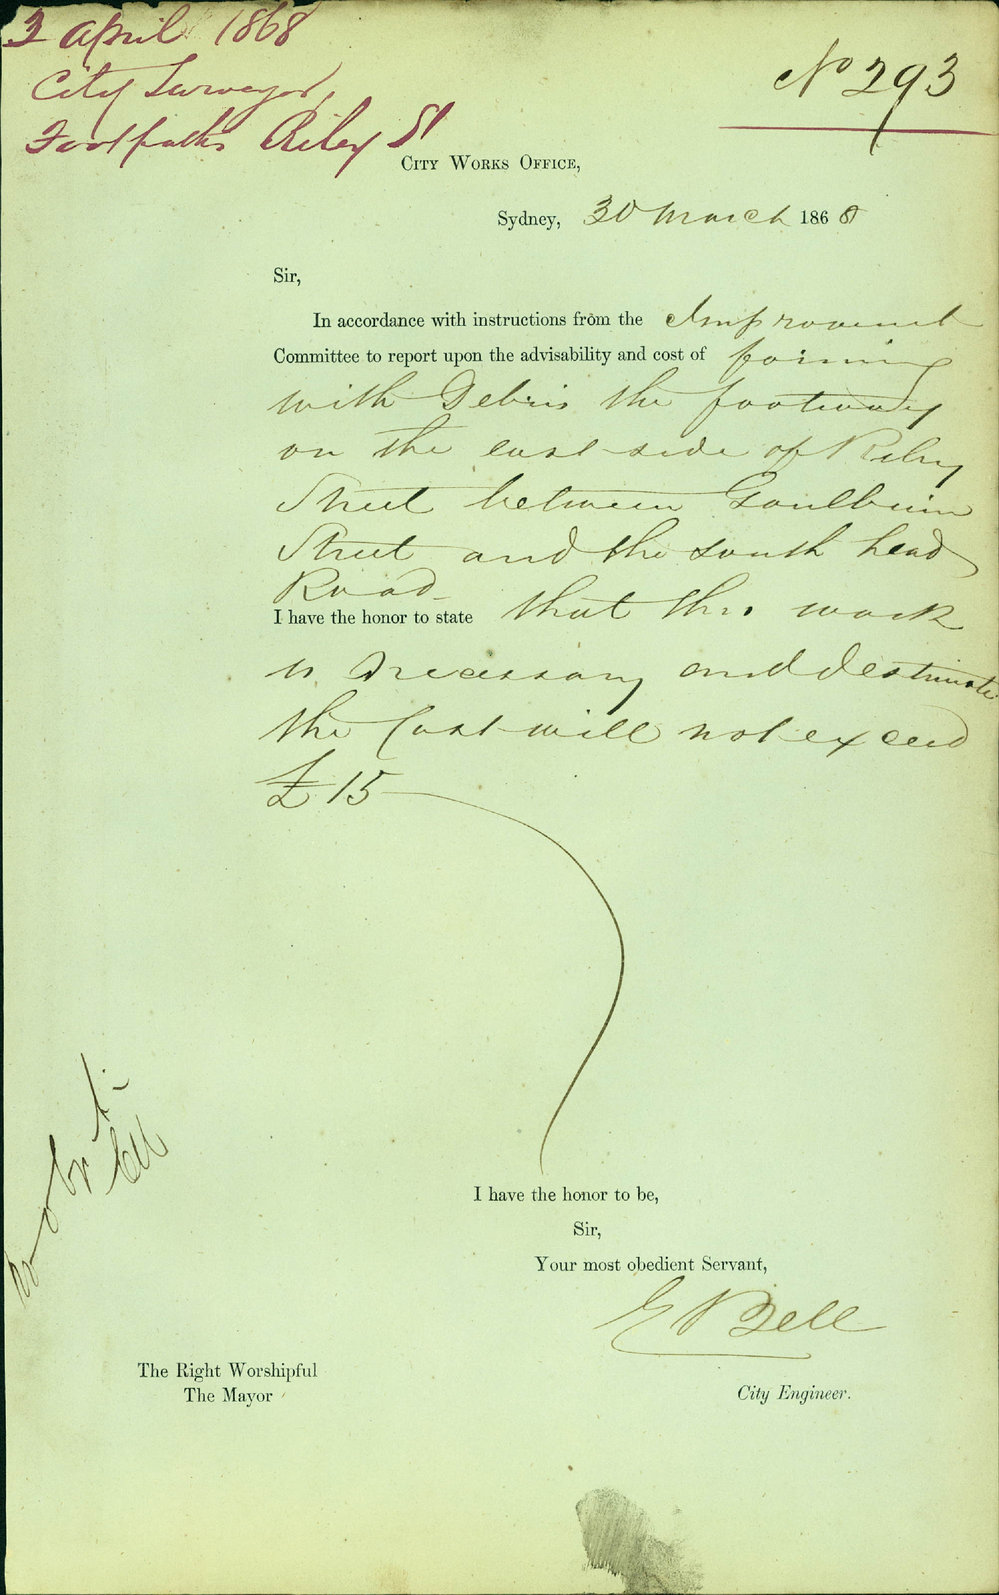 3 April 1868
City Surveyor,
Footpaths Riley St
No 293
City Works Office,
Sydney, 30 March 1868
Sir,
In accordance with instructions from the Improvement
Committee to report upon the advisability and cost of forming
with Debris the footway
on the east side of Riley
Street between Goulburn
Street and the South head
Road
I have the honor to state that this work
is necessary and I estimate
the Cost will not exceed
£15
I have the honor to be,
Sir,
Your most obedient Servant,
E Bell
The Right Worshipful
The Mayor
City Engineer.